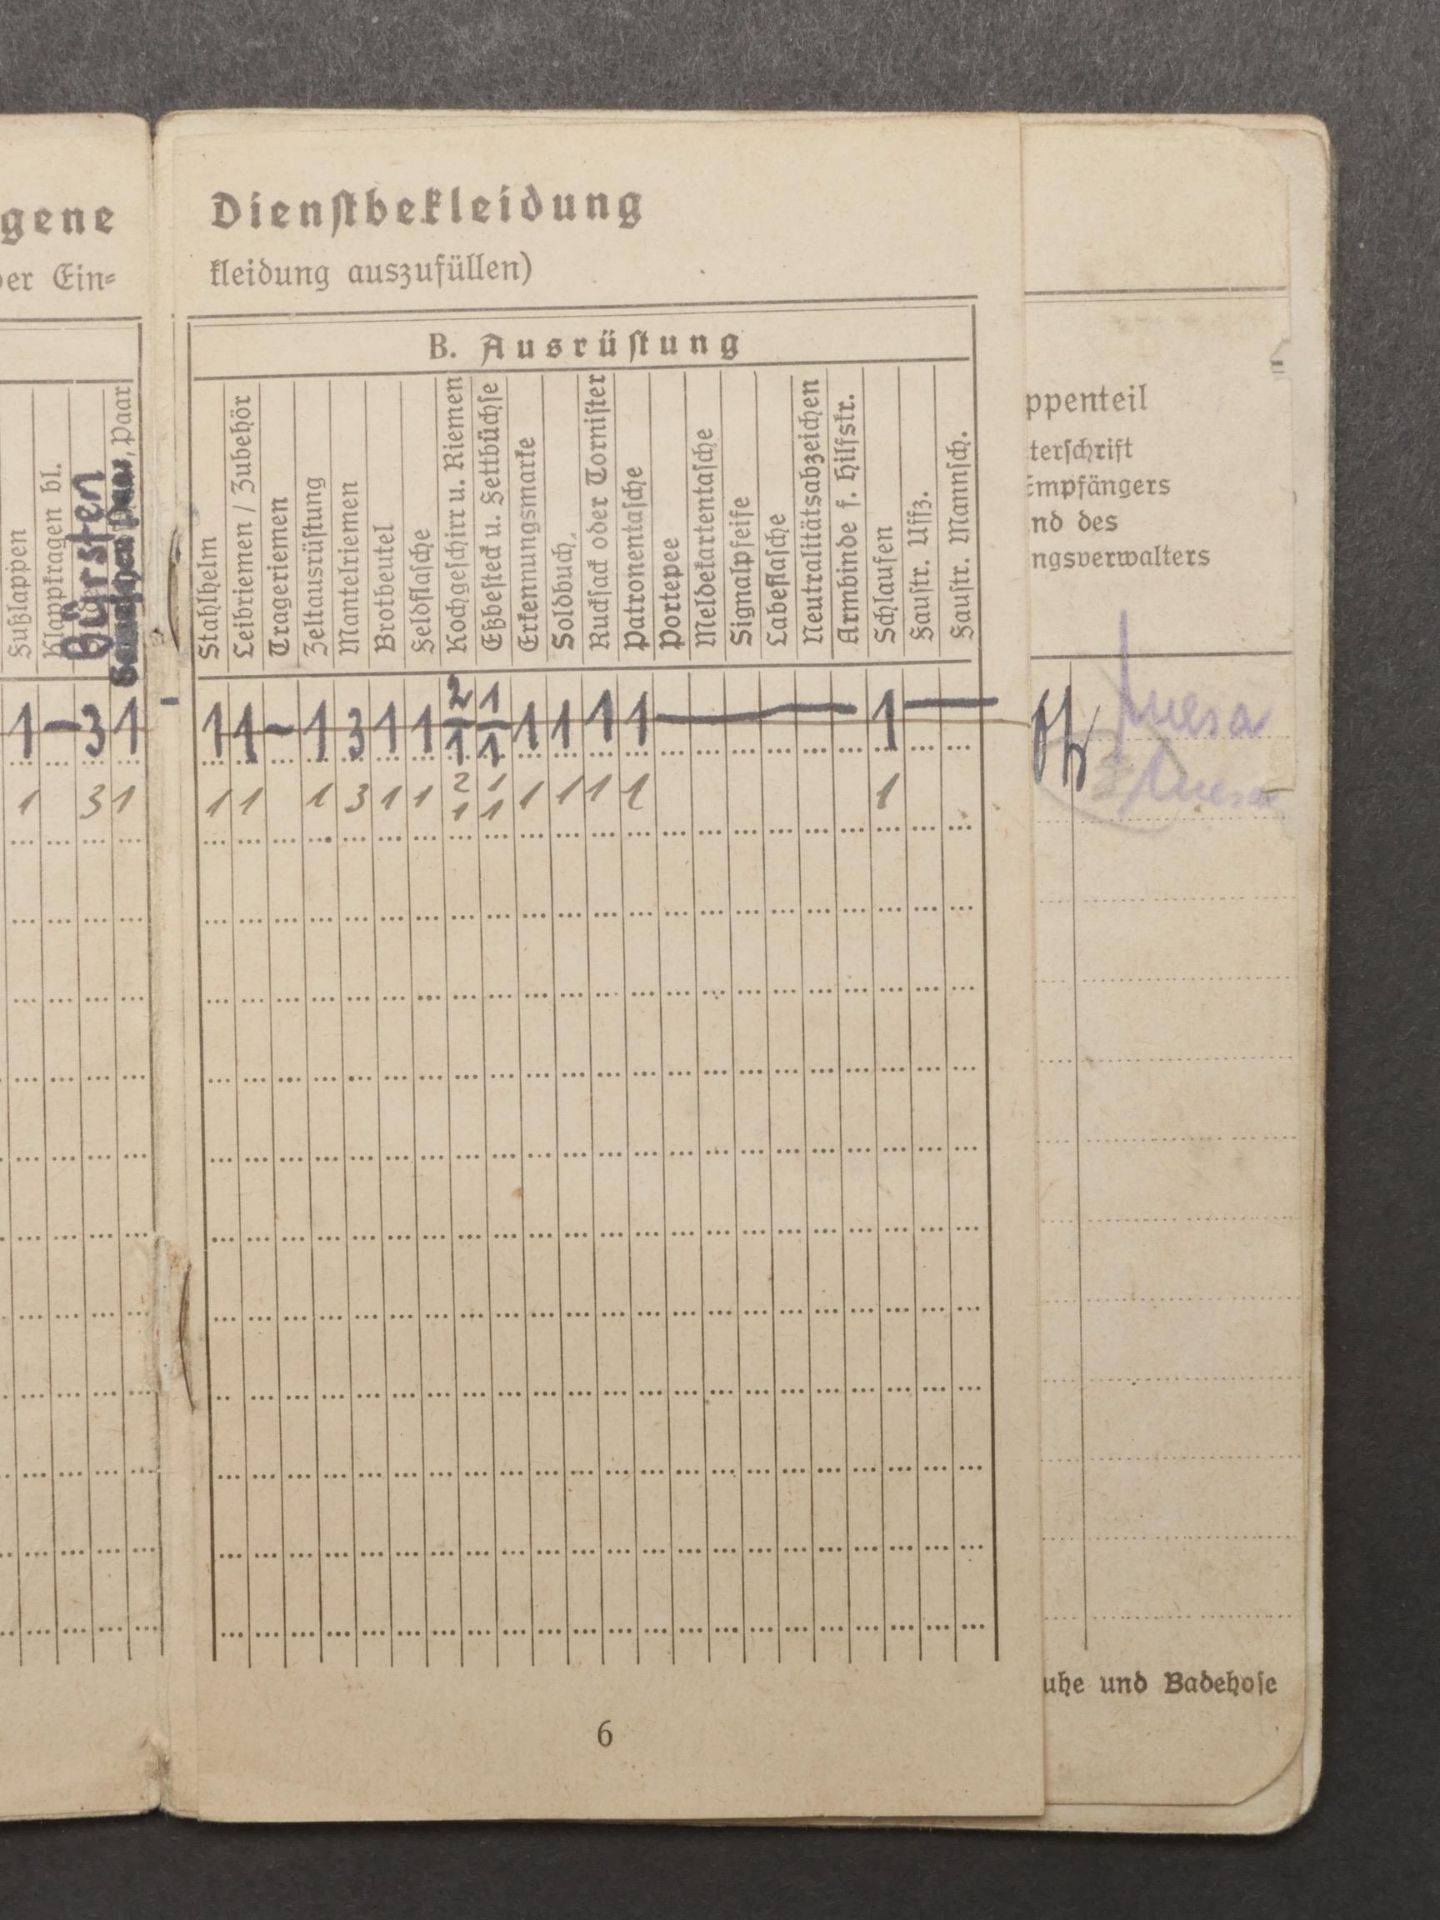 gene
er Ein-
Fußlappen
Klappkragen bl.
Bürsten
, Paar
1 – 3 1 –
1 3 1
Dienstbekleidung
kleidung auszufüllen)
B. Ausrüstung
Stahlhelm
Leibriemen / Zubehör
Trageriemen
Zeltausrüstung
Mantelriemen
Brotbeutel
Feldflasche
Kochgeschirr u. Riemen
Eßbesteck u. Fettbüchse
Erkennungsmarke
Soldbuch
Rucksack oder Tornister
Patronentasche
Portepee
Meldekartentasche
Signalpfeife
Labeflasche
Neutralitätsabzeichen
Armbinde f. Hilfskr.
Schlaufen
Faustr. Uffz.
Faustr. Mannsch.
1 1 – 1 3 1 1 2/1 1/1 1 1 1 1 — 1 —
1 1 1 3 1 1 2/1 1/1 1 1 1 1 1
6
ppenteil
terschrift
Empfängers
nd des
ngsverwalters
uhe und Badehose